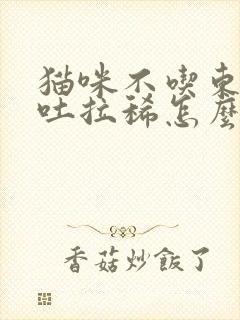 猫咪不喫東
吐拉稀怎麼
香菇炒飯了